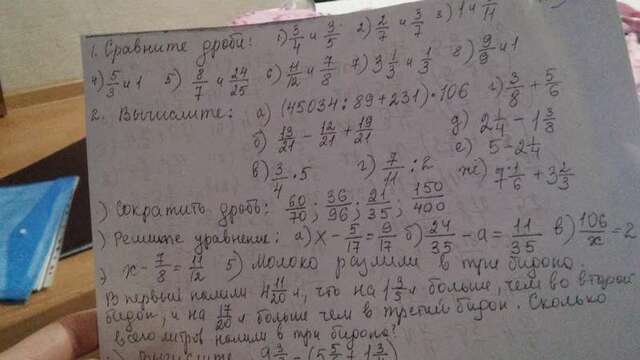 1. Сравните дроби: 1) 3/4 и 3/5 2) 2/7 и 3/7 3) 1 и /11
4) 5/3 и 1 5) 8/7 и 24/25 6) 11/12 и 7/8 7) 3 1/3 и 1/3 8) 9/9 и 1
2. Вычислите: а) (45034 : 89 + 231) · 106 г) 3/8 + 5/6
б) 13/21 - 12/21 + 19/21 д) 2 1/4 - 1 3/8
в) 3/4 · 5 г) 7/11 : 2 е) 5 - 2 1/4
ж) 7 1/6 + 3 2/3
) Сократить дробь: 60/70; 36/96; 21/35; 150/400
) Решите уравнение: а) х - 5/17 = 9/17 б) 24/35 - а = 11/35 в) 106/х = 2
) х - 7/8 = 11/12 5) Молоко разлили в три бидона.
В первый налили 4 11/20 л, что на 1 л больше, чем во второй
бидон, и на 17/20 л больше чем в третий бидон. Сколько
всего литров налили в три бидона?
) Вычислите 9 - (5 + 1